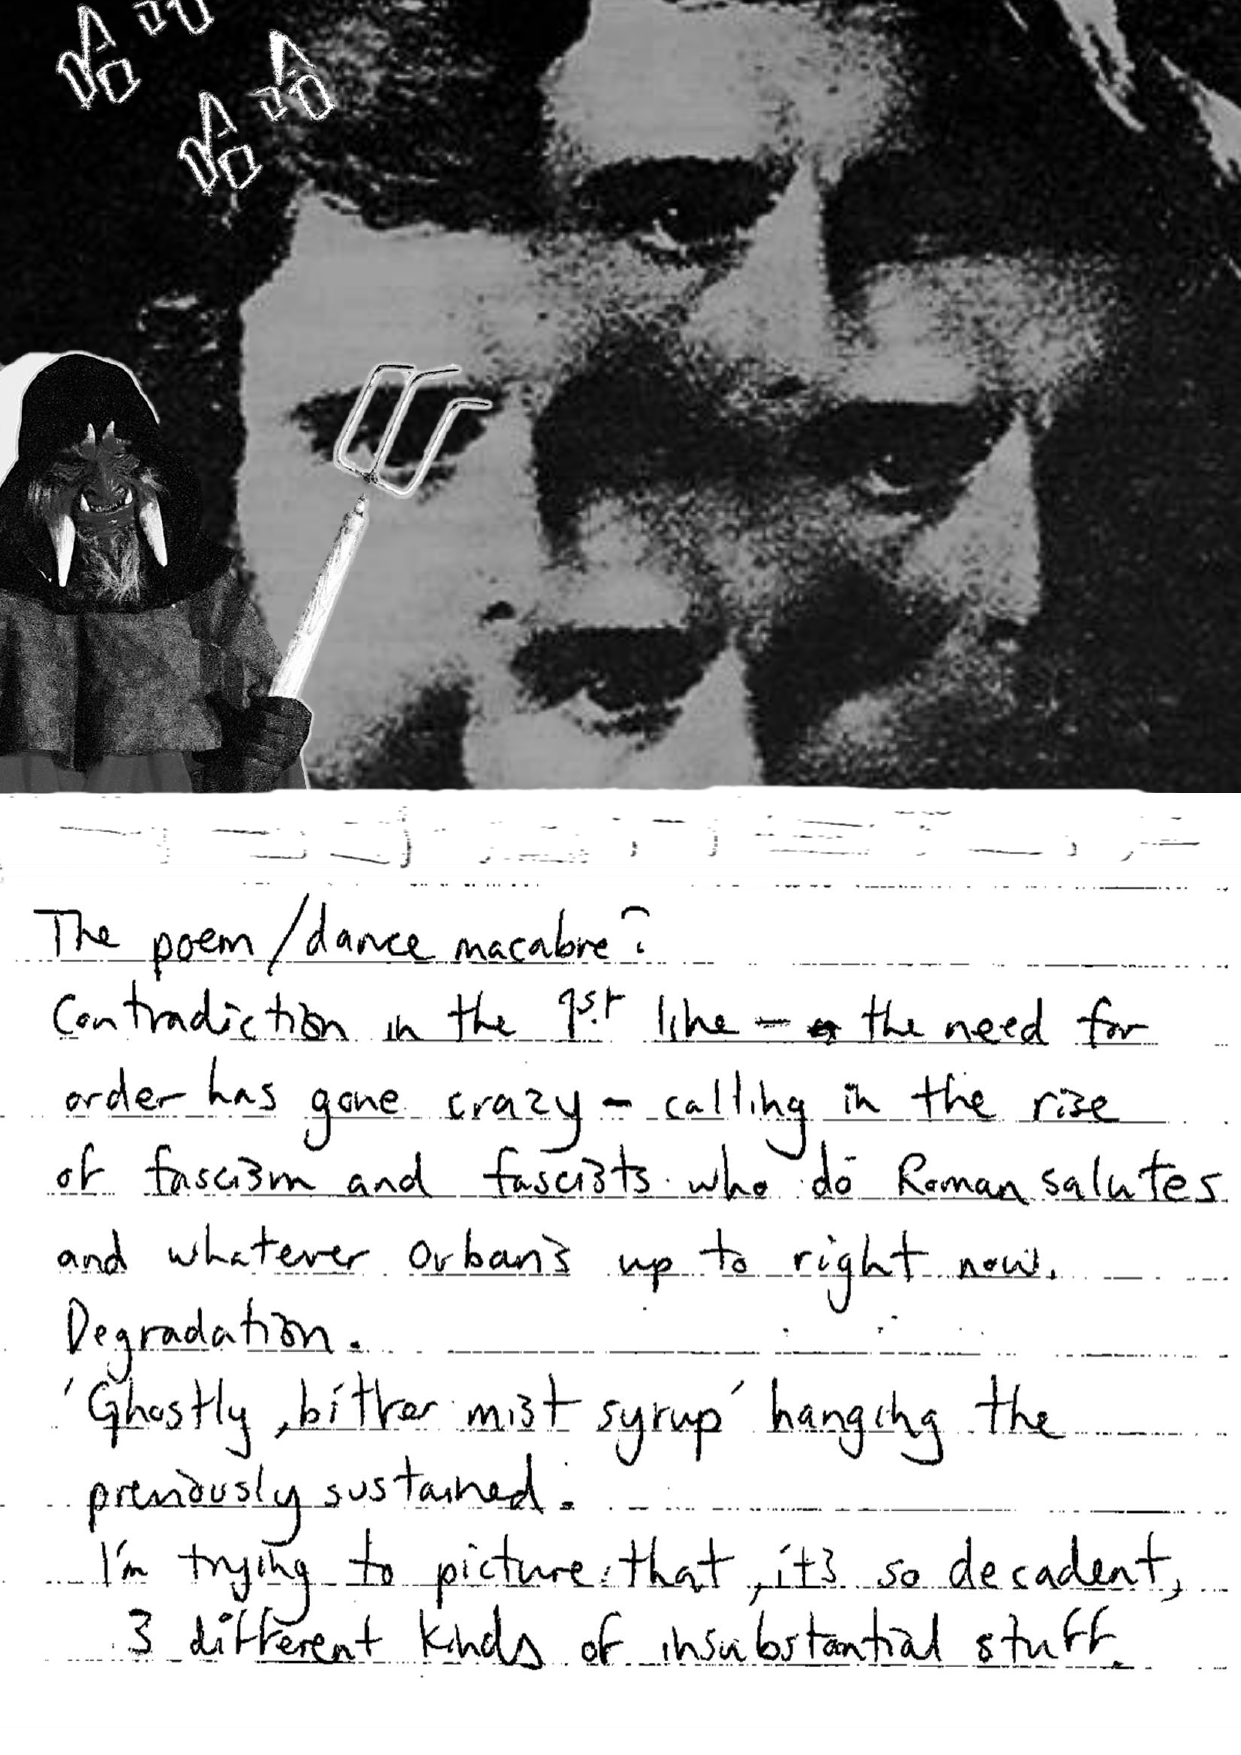 DADA
DADA
The poem/dance macabre?
Contradiction in the 1st line - the need for
order has gone crazy - calling in the rise
of fascism and fascists who do Roman salutes
and whatever Orban's up to right now.
Degradation.
'Ghostly, bitter mist syrup' hanging the
previously sustained.
I'm trying to picture that, it's so decadent,
3 different kinds of insubstantial stuff.